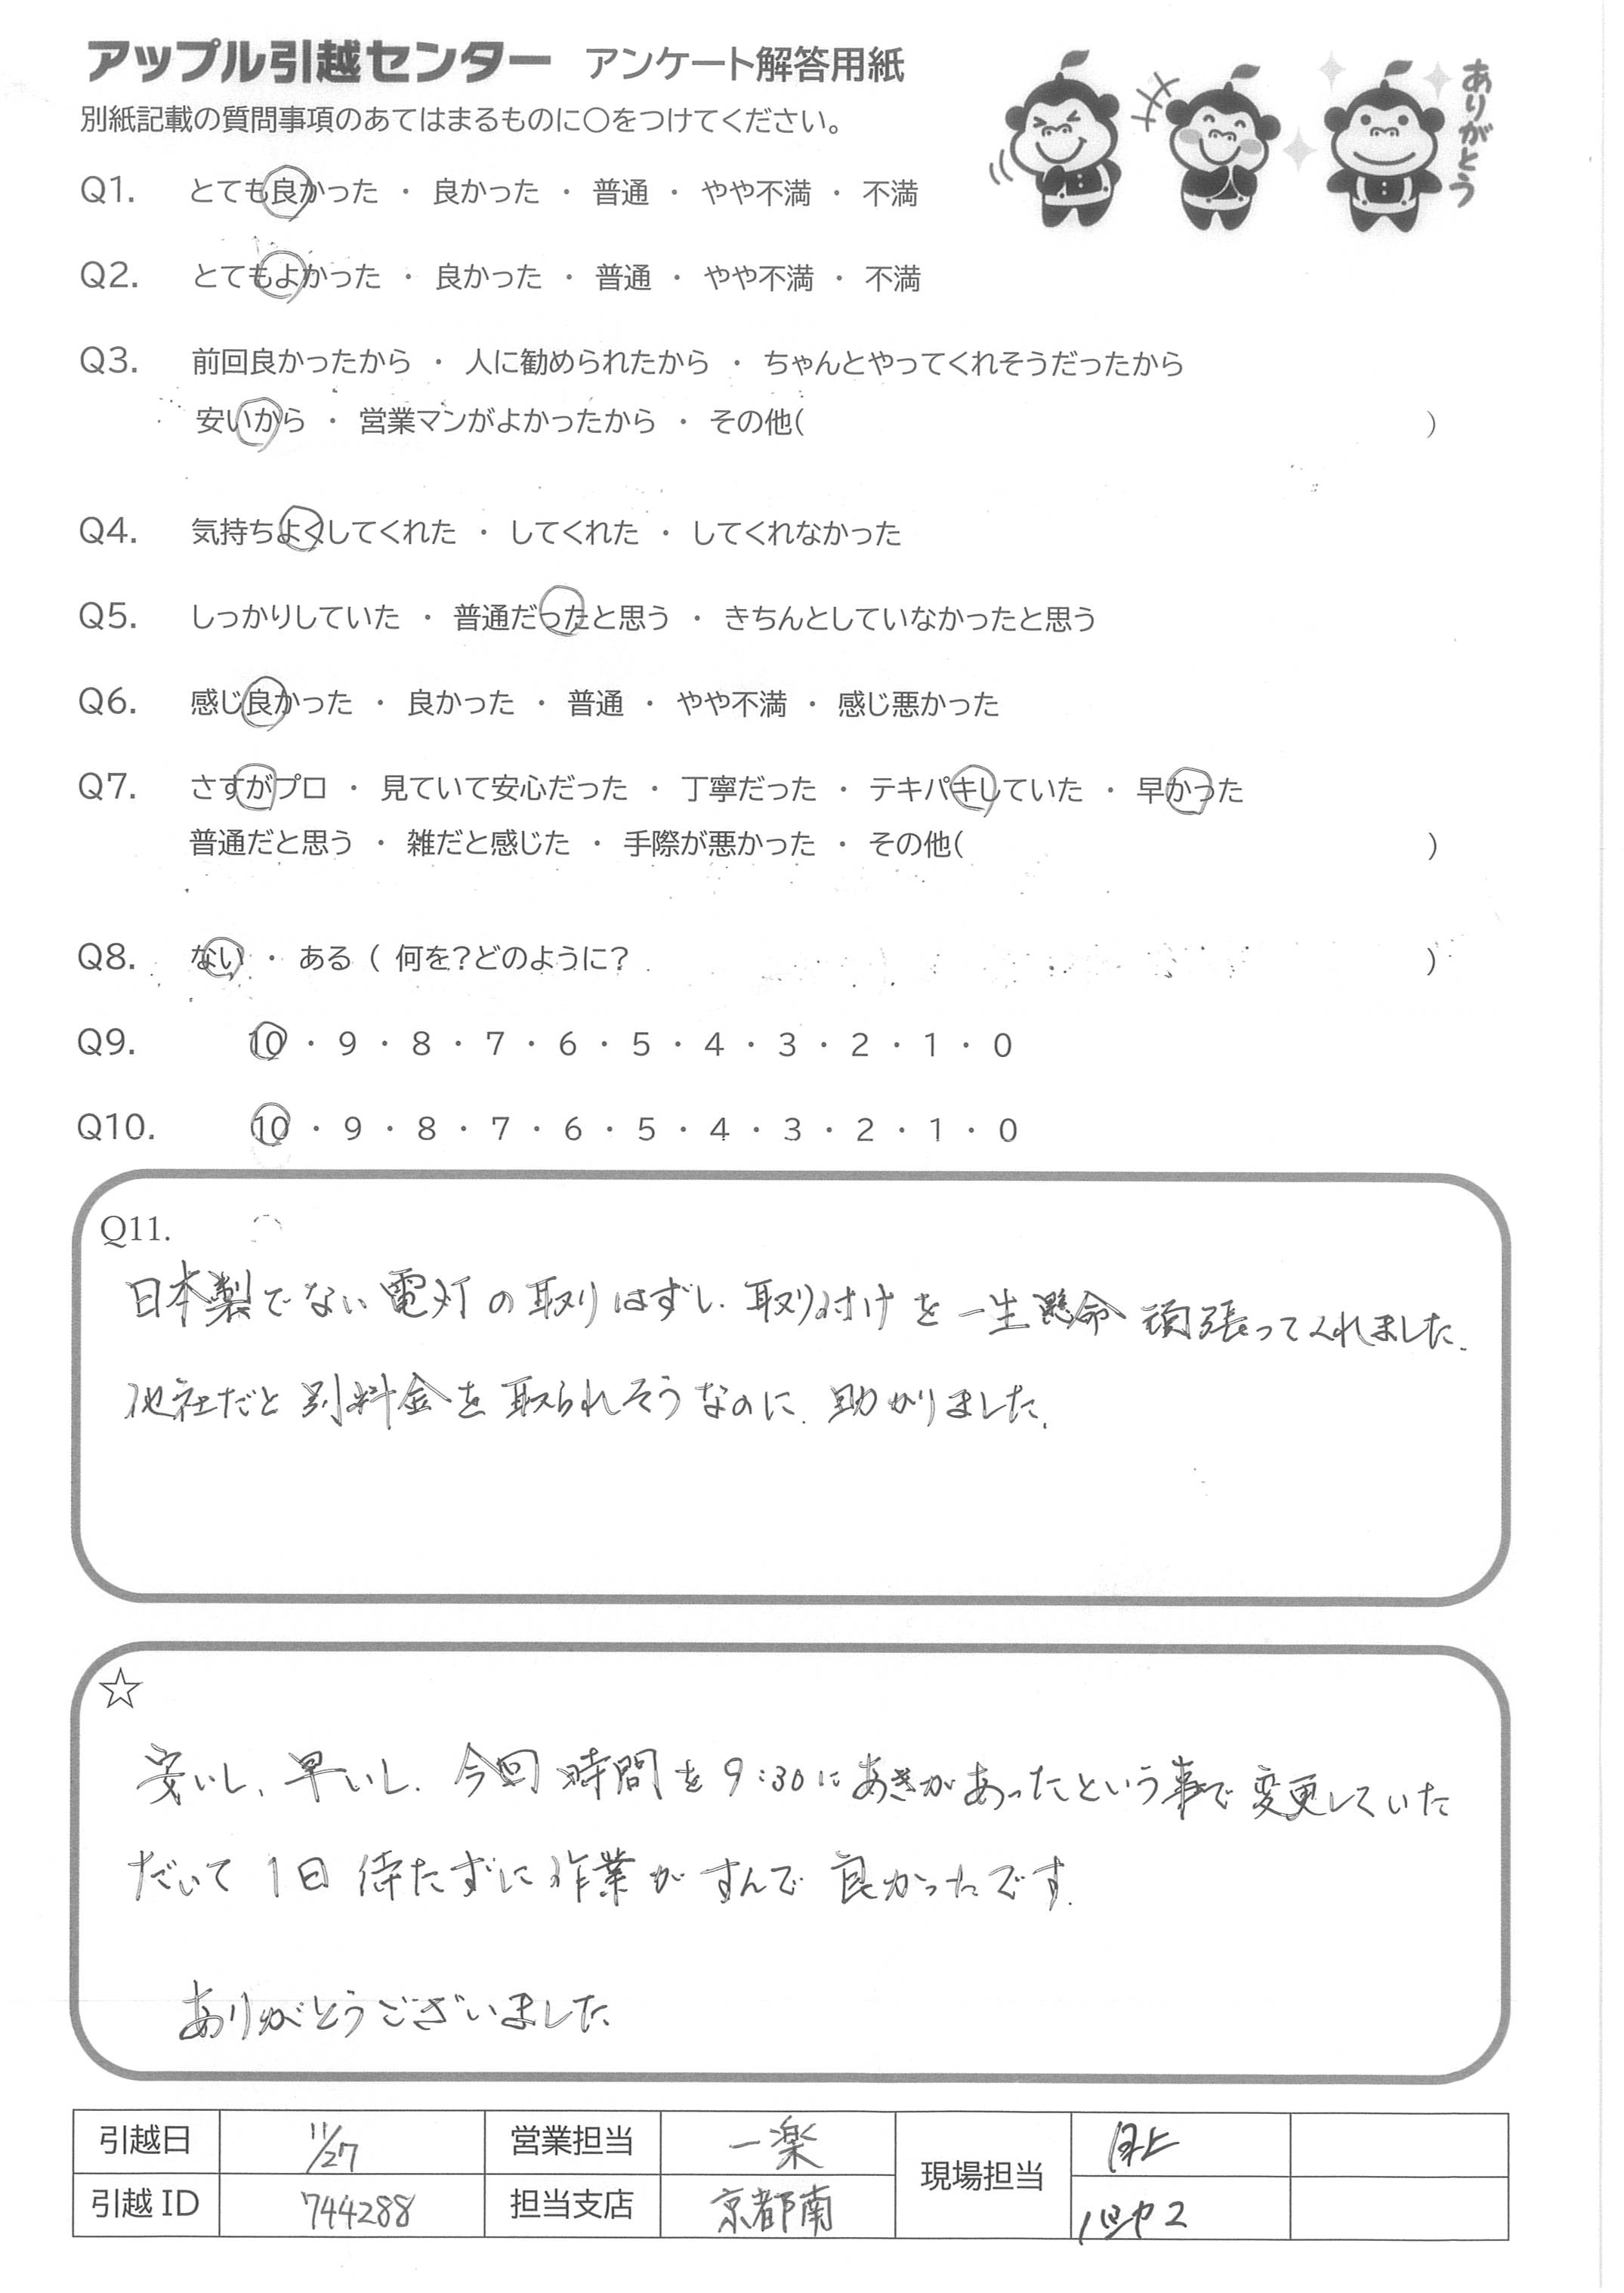 アップル引越センター アンケート解答用紙
別紙記載の質問事項のあてはまるものに○をつけてください。
ありがとう
Q1. とても良かった ・ 良かった ・ 普通 ・ やや不満 ・ 不満
Q2. とてもよかった ・ 良かった ・ 普通 ・ やや不満 ・ 不満
Q3. 前回良かったから ・ 人に勧められたから ・ ちゃんとやってくれそうだったから
安いから ・ 営業マンがよかったから ・ その他( )
Q4. 気持ちよくしてくれた ・ してくれた ・ してくれなかった
Q5. しっかりしていた ・ 普通だったと思う ・ きちんとしていなかったと思う
Q6. 感じ良かった ・ 良かった ・ 普通 ・ やや不満 ・ 感じ悪かった
Q7. さすがプロ ・ 見ていて安心だった ・ 丁寧だった ・ テキパキしていた ・ 早かった
普通だと思う ・ 雑だと感じた ・ 手際が悪かった ・ その他( )
Q8. ない ・ ある ( 何を?どのように? )
Q9. 10 ・ 9 ・ 8 ・ 7 ・ 6 ・ 5 ・ 4 ・ 3 ・ 2 ・ 1 ・ 0
Q10. 10 ・ 9 ・ 8 ・ 7 ・ 6 ・ 5 ・ 4 ・ 3 ・ 2 ・ 1 ・ 0
Q11.
日本製でない電灯の取りはずし、取り付けを一生懸命頑張ってくれました。
他社だと別料金を取られそうなのに、助かりました。
☆
安いし、早いし、今回時間を9:30にあきがあったという事で変更していた
だいて1日待たずに作業がすんで良かったです。
ありがとうございました
引越日 11/27 営業担当 一楽 現場担当
引越ID 744288 担当支店 京都南